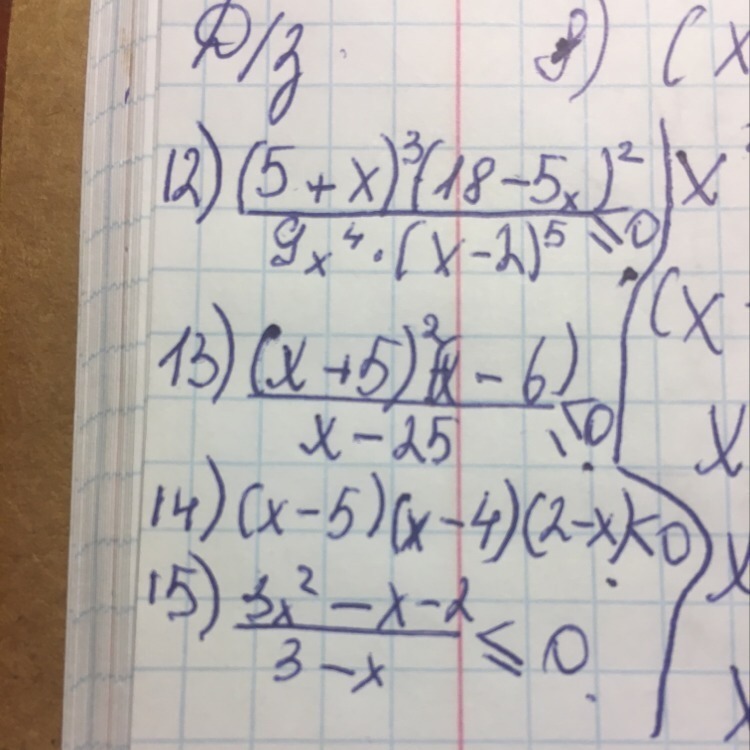 Д/з
8) (x
12) (5 + x)³(18 - 5x)² / 9x⁴ · (x - 2)⁵ ≤ 0
x
(x
13) (x + 5)²(x - 6) / x - 25 ≤ 0
x
14) (x - 5)(x - 4)(2 - x) < 0
x
15) 3x² - x - 2 / 3 - x ≤ 0
x